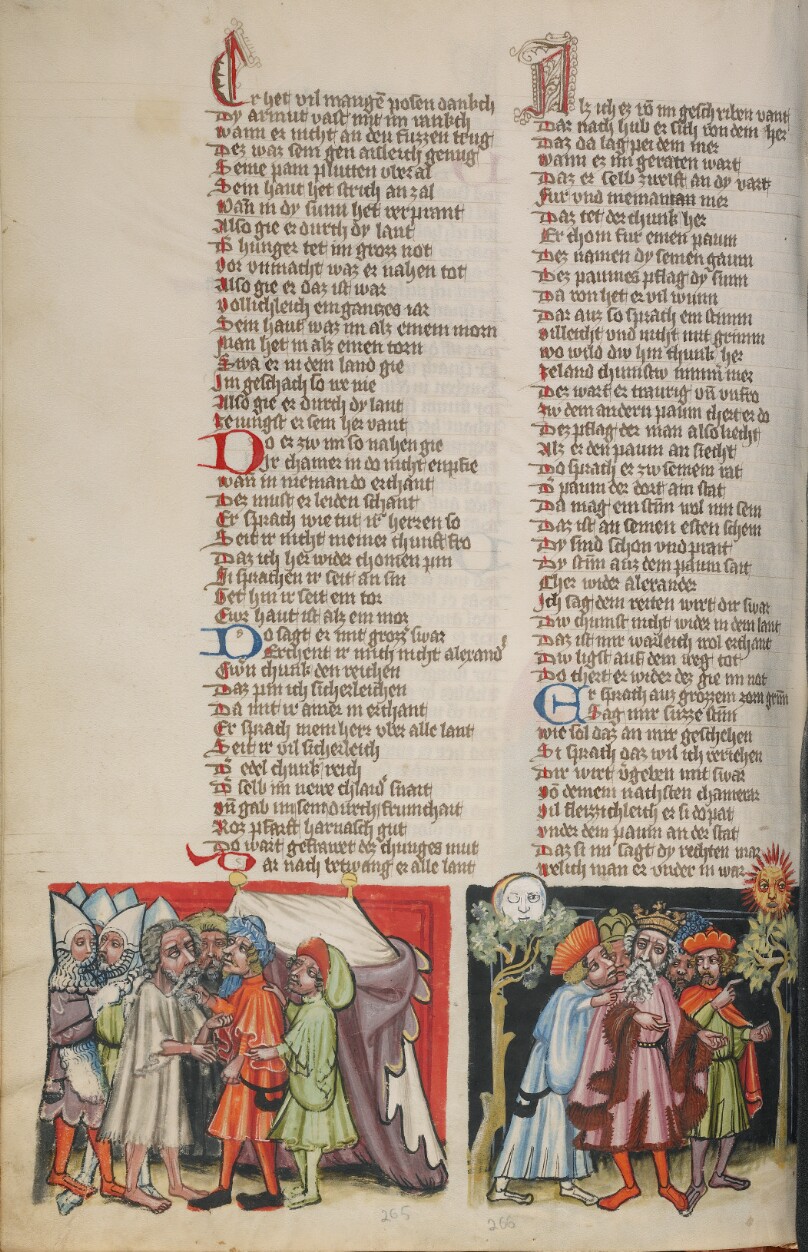 Er het vil mangē posen dankch
Dy armut vast mit im rankch
wann er nicht an den fuzzen trug
Dez waz sein gen aisleich genug
Seine pain plutten vberal
Sein haut het strich an zal
Wañ in dy sunn het verprant
Also gie er durch dy lant
D hunger tet im groz not
Vor vnmacht waz er nahen tot
Also gie er daz ist war
Vollichleich ein ganczes iar
Sein haut waz im alz einem morn
Man het in alz einen torn
Swa er in dem land gie
Im geschach so we nie
Also gie er durch dy lant
vncz er sein her vant
Do er zw im so nahen gie
Ir chainer in do nicht enphie
wañ in nieman do erchant
Der must er leiden schant
Er sprach wie tut ir herren so
Seit ir nicht meiner chunft fro
Daz ich her wider chomen pin
Si sprachen ir seit an sin
Get hin ir seit ein tor
Ewr haut ist alz ein mor
Do sagt er mit grozz swar
Erchent ir mich nicht alexand
Ewrn chunk den reichen
Daz pin ich sicherleichen
Da mit ir ainer in erchant
Er sprach mein herr vber alle lant
Seit ir vil sicherleich
D edel chunk reich
D selb im newe chlaid snait
vñ gab im sein durch frumchait
Roz pfarft harnasch gut
Do wart gefrawet dez chunges mut
Dar nach betwang er alle lant
Alz ich ez võ im geschriben vant
Dar nach hub er sich von dem her
Daz da lag pei dem mer
wann er im geraten wart
Daz er selb zwelft an dy vart
Fur vnd niemantan mer
Daz tet der chunk her
Er chom fur einen paum
Dez namen dy seinen gaum
Dez paumes pflag dy sunn
Da von het er vil wunn
Dar auz so sprach ein stimm
Villeicht vnd nicht mit grimm
wo wild dw hin chunk her
ze land chumstw nimm mer
Der wart er traurig vñ vnfro
zw dem andern paum chert er do
Dez pflag der man also liecht
Alz er den paum an siecht
Do sprach er zw seinem rat
D paum der dort an stat
Da mag ein stim wol inn sein
Daz ist an seinen esten schein
Dy sind schon vnd prait
Dy stim auz dem paum sait
Cher wider alexander
Ich sag dem reiten wirt dir swar
Dw chumst nicht wider in dem lant
Daz ist mir warleich wol erchant
Dw ligst auf dem weg tot
Do chert er wider dez gie im not
Er sprach auz grozzem zorn grim
Sag mir suzze stim
wie sol daz an mir geschehen
Si sprach daz wil ich veriehen
Dir wirt vgeben mit swar
võ deinem nachsten chamerer
Vil fleizzichleich er si do pat
vnder dem paum an der stat
Daz si im sagt dy rechten mar
welich man er vnder in war
265
266